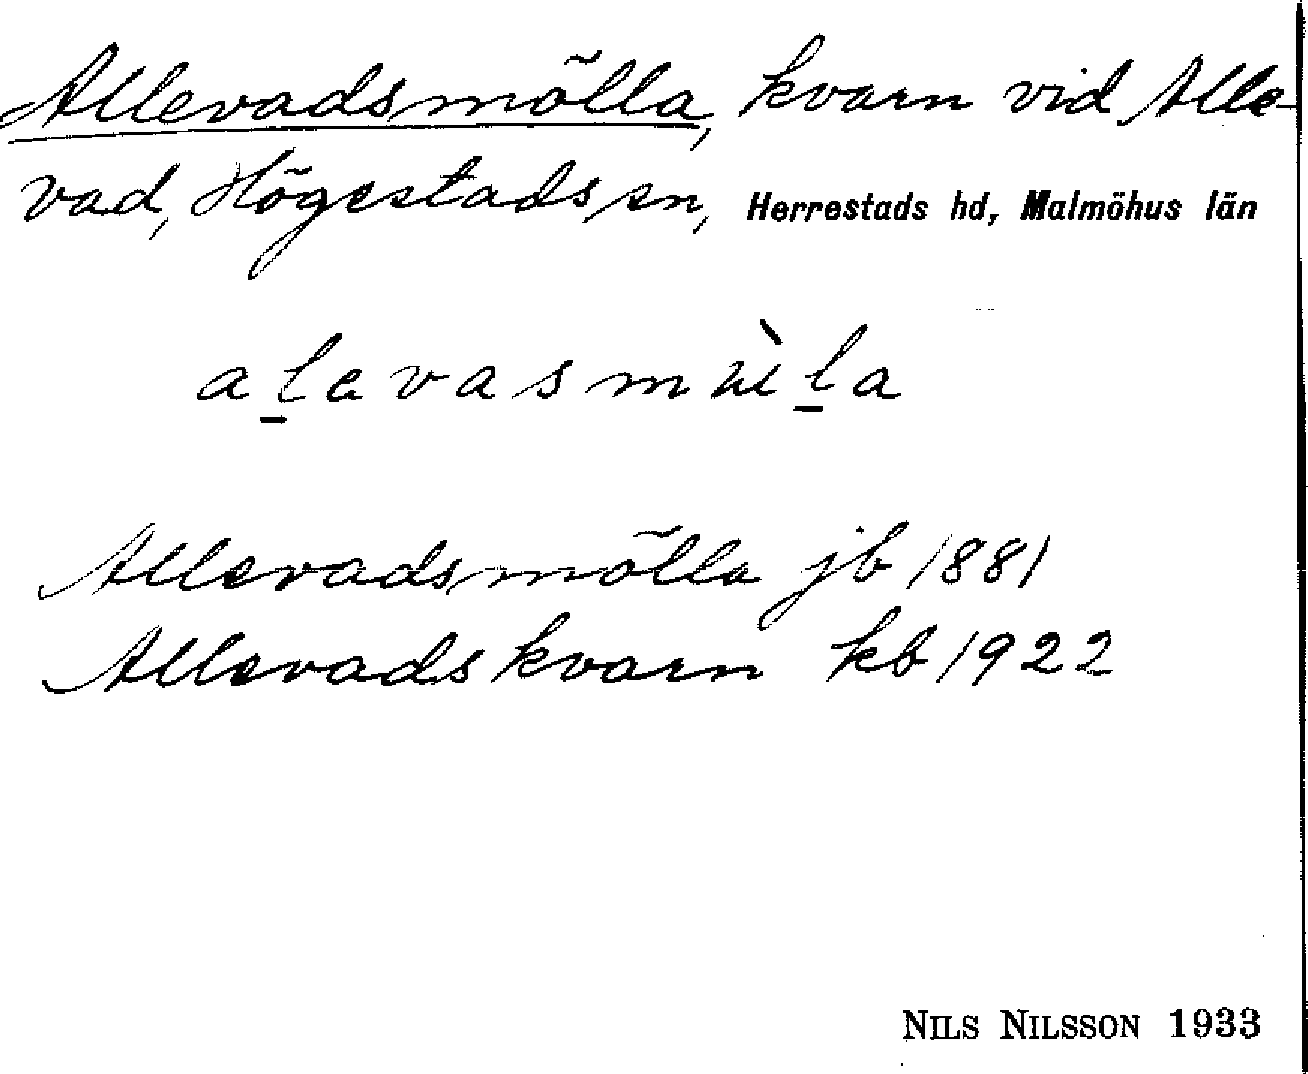 Allevadsmölla, kvarn vid Alle-
vad, Högestads sn, Herrestads hd, Malmöhus län
Allevadsmölla jb 1881
Allevadskvarn kb 1922
NILS NILSSON 1933